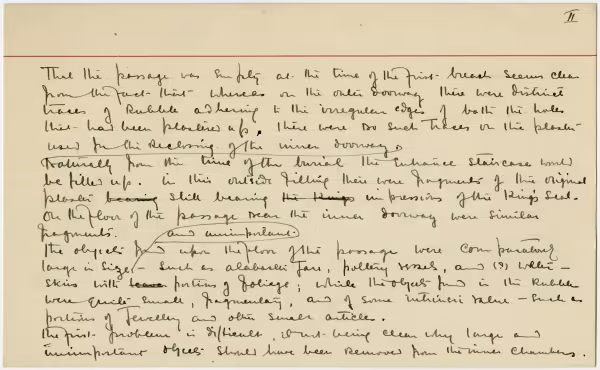 II
That the passage was empty at the time of the first breach seems clear
from the fact that whereas on the outer doorway there were distinct
traces of Rubble adhering to the irregular edges of both the holes
that had been plastered up, there were no such traces on the plaster
used for the Reclosing of the inner doorway.
Naturally from the time of the burial the Entrance Staircase would
be filled up. in this outside filling there were fragments of the original
plaster bearing still bearing the Kings impressions of the King's Seal.
On the floor of the passage near the inner doorway were similar
fragments.
and unimportant.
The objects found upon the floor of the passage were comparatively
large in size, - such as alabaster jars, pottery vessels, and (?) water-
skins with portions of foliage; while the objects found in the Rubble
were quite small, fragmentary, and of some intrinsic value - such as
portions of jewellery and other small articles.
The first problem is difficult, it not being clear why large and
unimportant objects should have been removed from the inner chambers.